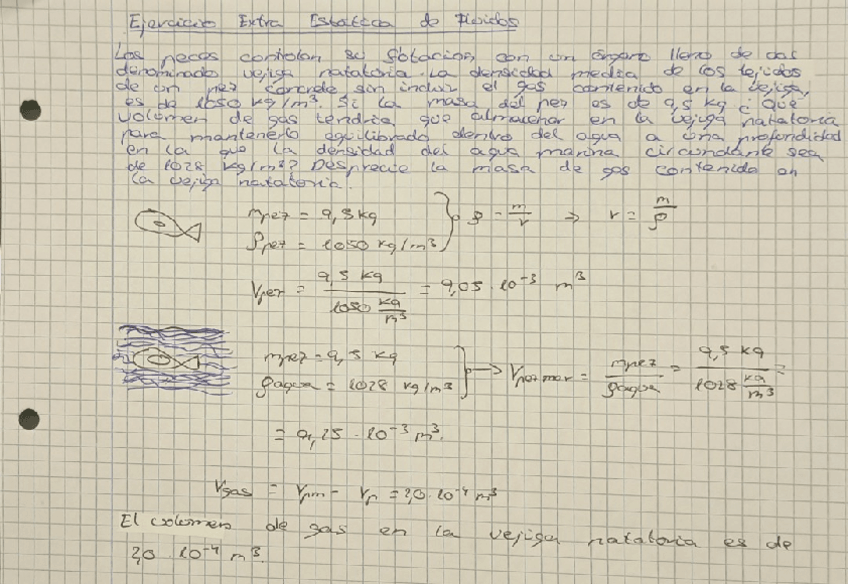 Ejercicio Extra Estática de Fluidos
Los peces controlan su flotación, con un órgano lleno de gas
denominado vejiga natatoria. La densidad media de los tejidos
de un pez concreto sin incluir el gas contenido en la vejiga,
es de 1050 kg/m³. Si la masa del pez es de 9,5 kg ¿ Qué
volumen de gas tendría que almacenar en la vejiga natatoria
para mantenerlo equilibrado dentro del agua a una profundidad
en la que la densidad del agua marina circundante sea
de 1028 kg/m³? Desprecie la masa de gas contenida en
la vejiga natatoria.
mpez = 9,5 kg
ρpez = 1050 kg/m³ } ρ = m/v ⇒ v = m/ρ
Vpez = 9,5 kg / 1050 kg/m³ = 9,05 · 10⁻³ m³
mpez = 9,5 kg
ρagua = 1028 kg/m³ } → Vpez mar = mpez/ρagua = 9,5 kg / 1028 kg/m³ =
= 9,25 · 10⁻³ m³.
Vgas = Vpm - Vp = 2,0 · 10⁻⁴ m³
El volumen de gas en la vejiga natatoria es de
2,0 · 10⁻⁴ m³.